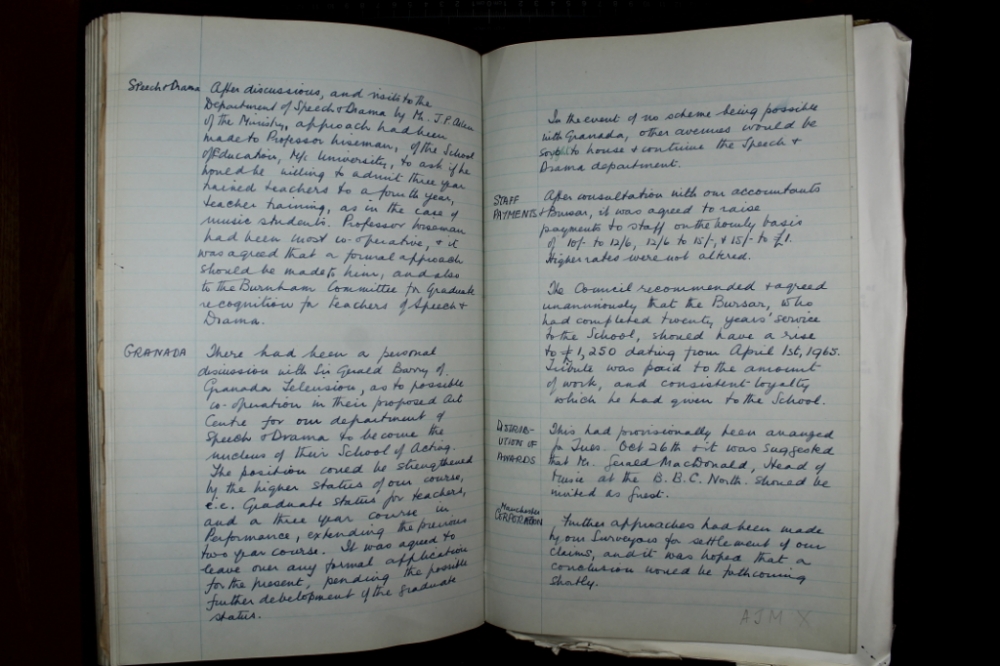 Speech & Drama After discussions, and visits to the
Department of Speech & Drama by Mr. J.P. Allen
of the Ministry, approach had been
made to Professor Wiseman, of the School
of Education, M/c University, to ask if he
would be willing to admit three year
trained teachers to a fourth year,
teacher training, as in the case of
music students. Professor Wiseman
had been most co-operative, & it
was agreed that a formal approach
should be made to him, and also
to the Burnham Committee for Graduate
recognition for teachers of Speech &
Drama.
GRANADA There had been a personal
discussion with Sir Gerald Barry of
Granada Television, as to possible
co-operation in their proposed Art
Centre for our department of
Speech & Drama to become the
nucleus of their School of Acting.
The position could be strengthened
by the higher status of our course,
i.e. Graduate status for teachers,
and a three year course in
Performance, extending the previous
two year course. It was agreed to
leave over any formal application
for the present, pending the possible
further development of the graduate
status.
In the event of no scheme being possible
with Granada, other avenues would be
sought to house & continue the Speech &
Drama department.
STAFF PAYMENTS After consultation with our accountants
& Bursar, it was agreed to raise
payments to staff on the hourly basis
of 10/- to 12/6, 12/6 to 15/-, & 15/- to £1.
Higher rates were not altered.
The Council recommended & agreed
unanimously that the Bursar, who
had completed twenty years' service
to the School, should have a rise
to £1,250 dating from April 1st, 1965.
Tribute was paid to the amount
of work, and consistent loyalty
which he had given to the School.
DISTRIB-
UTION OF
AWARDS
This had provisionally been arranged
for Tues. Oct 26th & it was suggested
that Mr. Gerald MacDonald, Head of
Music at the B.B.C. North. should be
invited as guest.
Manchester
CORPORATION
Further approaches had been made
by our Surveyors for settlement of our
claims, and it was hoped that a
conclusion would be forthcoming
shortly.
AJM X